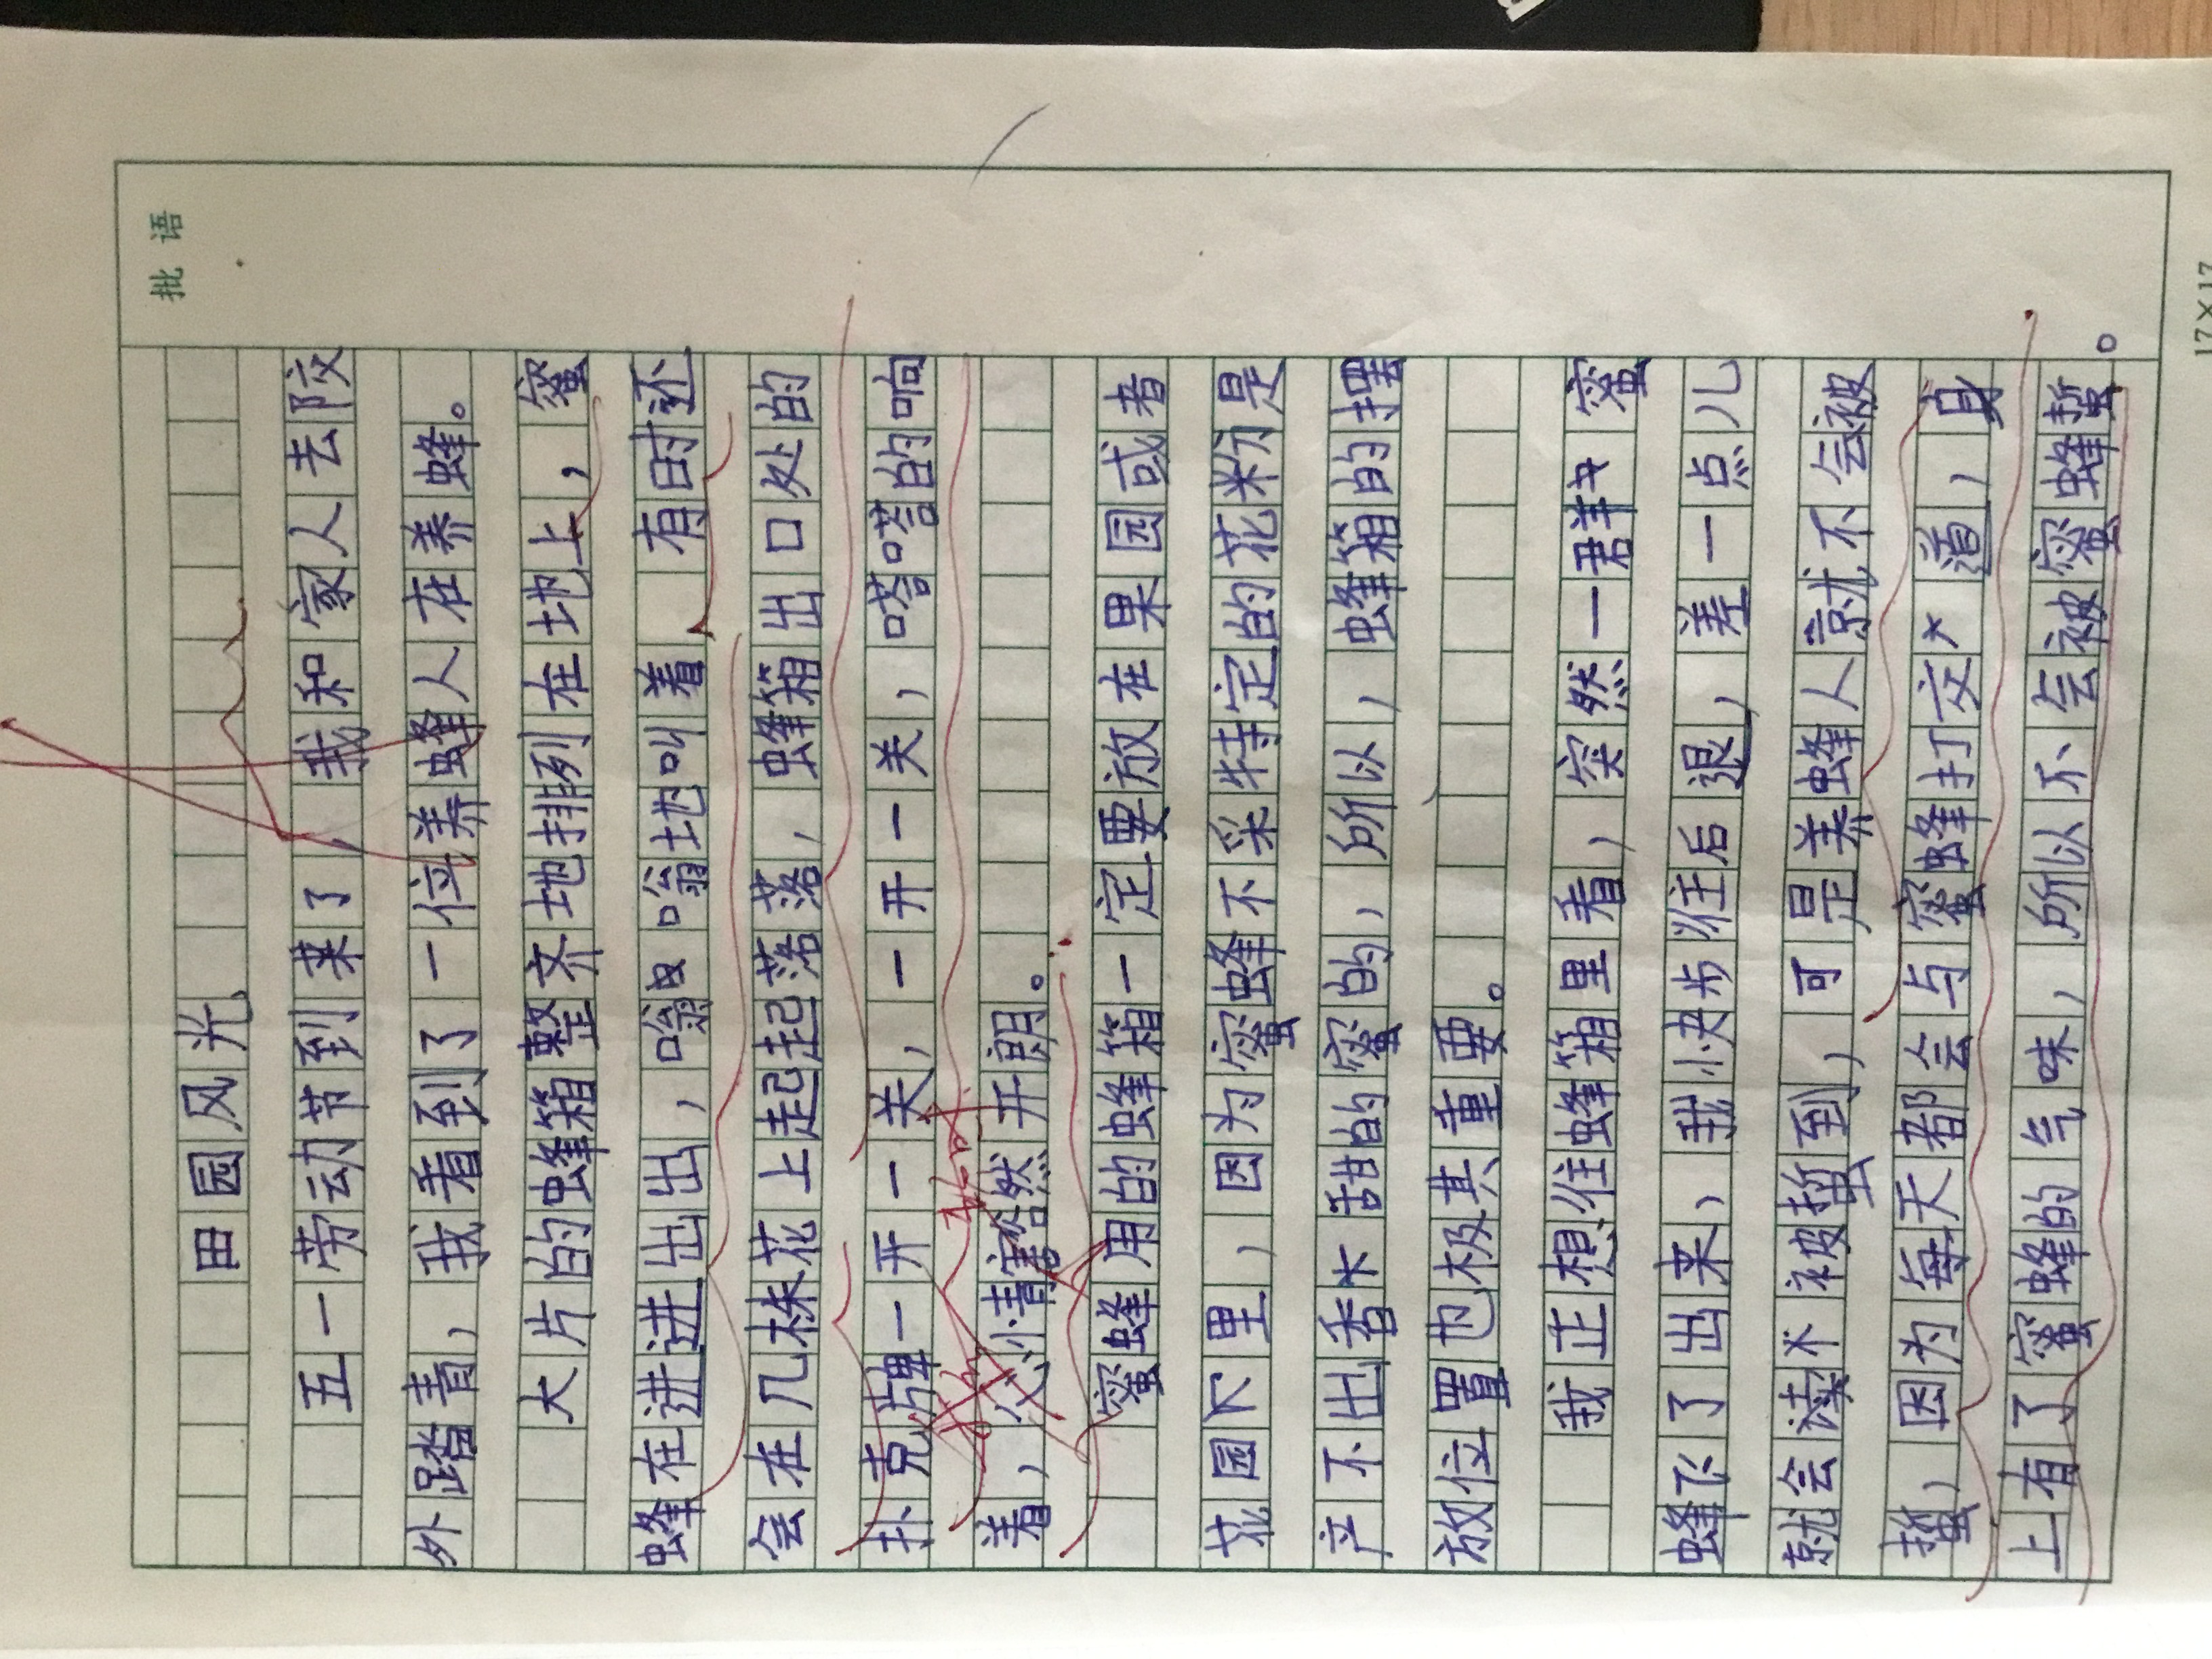 批语
田园风光
五一劳动节到来了，我和家人去陖
外踏青，我看到了一位养蜂人在养蜂。
大片的蜂箱整齐地排列在地上，蜜
蜂在进进出出，嗡嗡地叫着，有时还
会在几株花上起起落落，蜂箱出口处的
扑克牌一开一关，一开一关，嗒嗒的响
着，心情豁然开朗。
蜜蜂用的蜂箱一定要放在果园或者
花园里，因为蜜蜂不采特定的花粉是
产不出香甜的蜜的，所以，蜂箱的摆
放位置也极其重要。
我正想往蜂箱里看，突然一群蜜
蜂飞了出来，我快步往后退，差一点儿
就会被蜇到，可是养蜂人就不会被
蜇，因为每天都会与蜜蜂打交道，身
上有了蜜蜂的气味，所以不会被蜜蜂蜇。
17×17